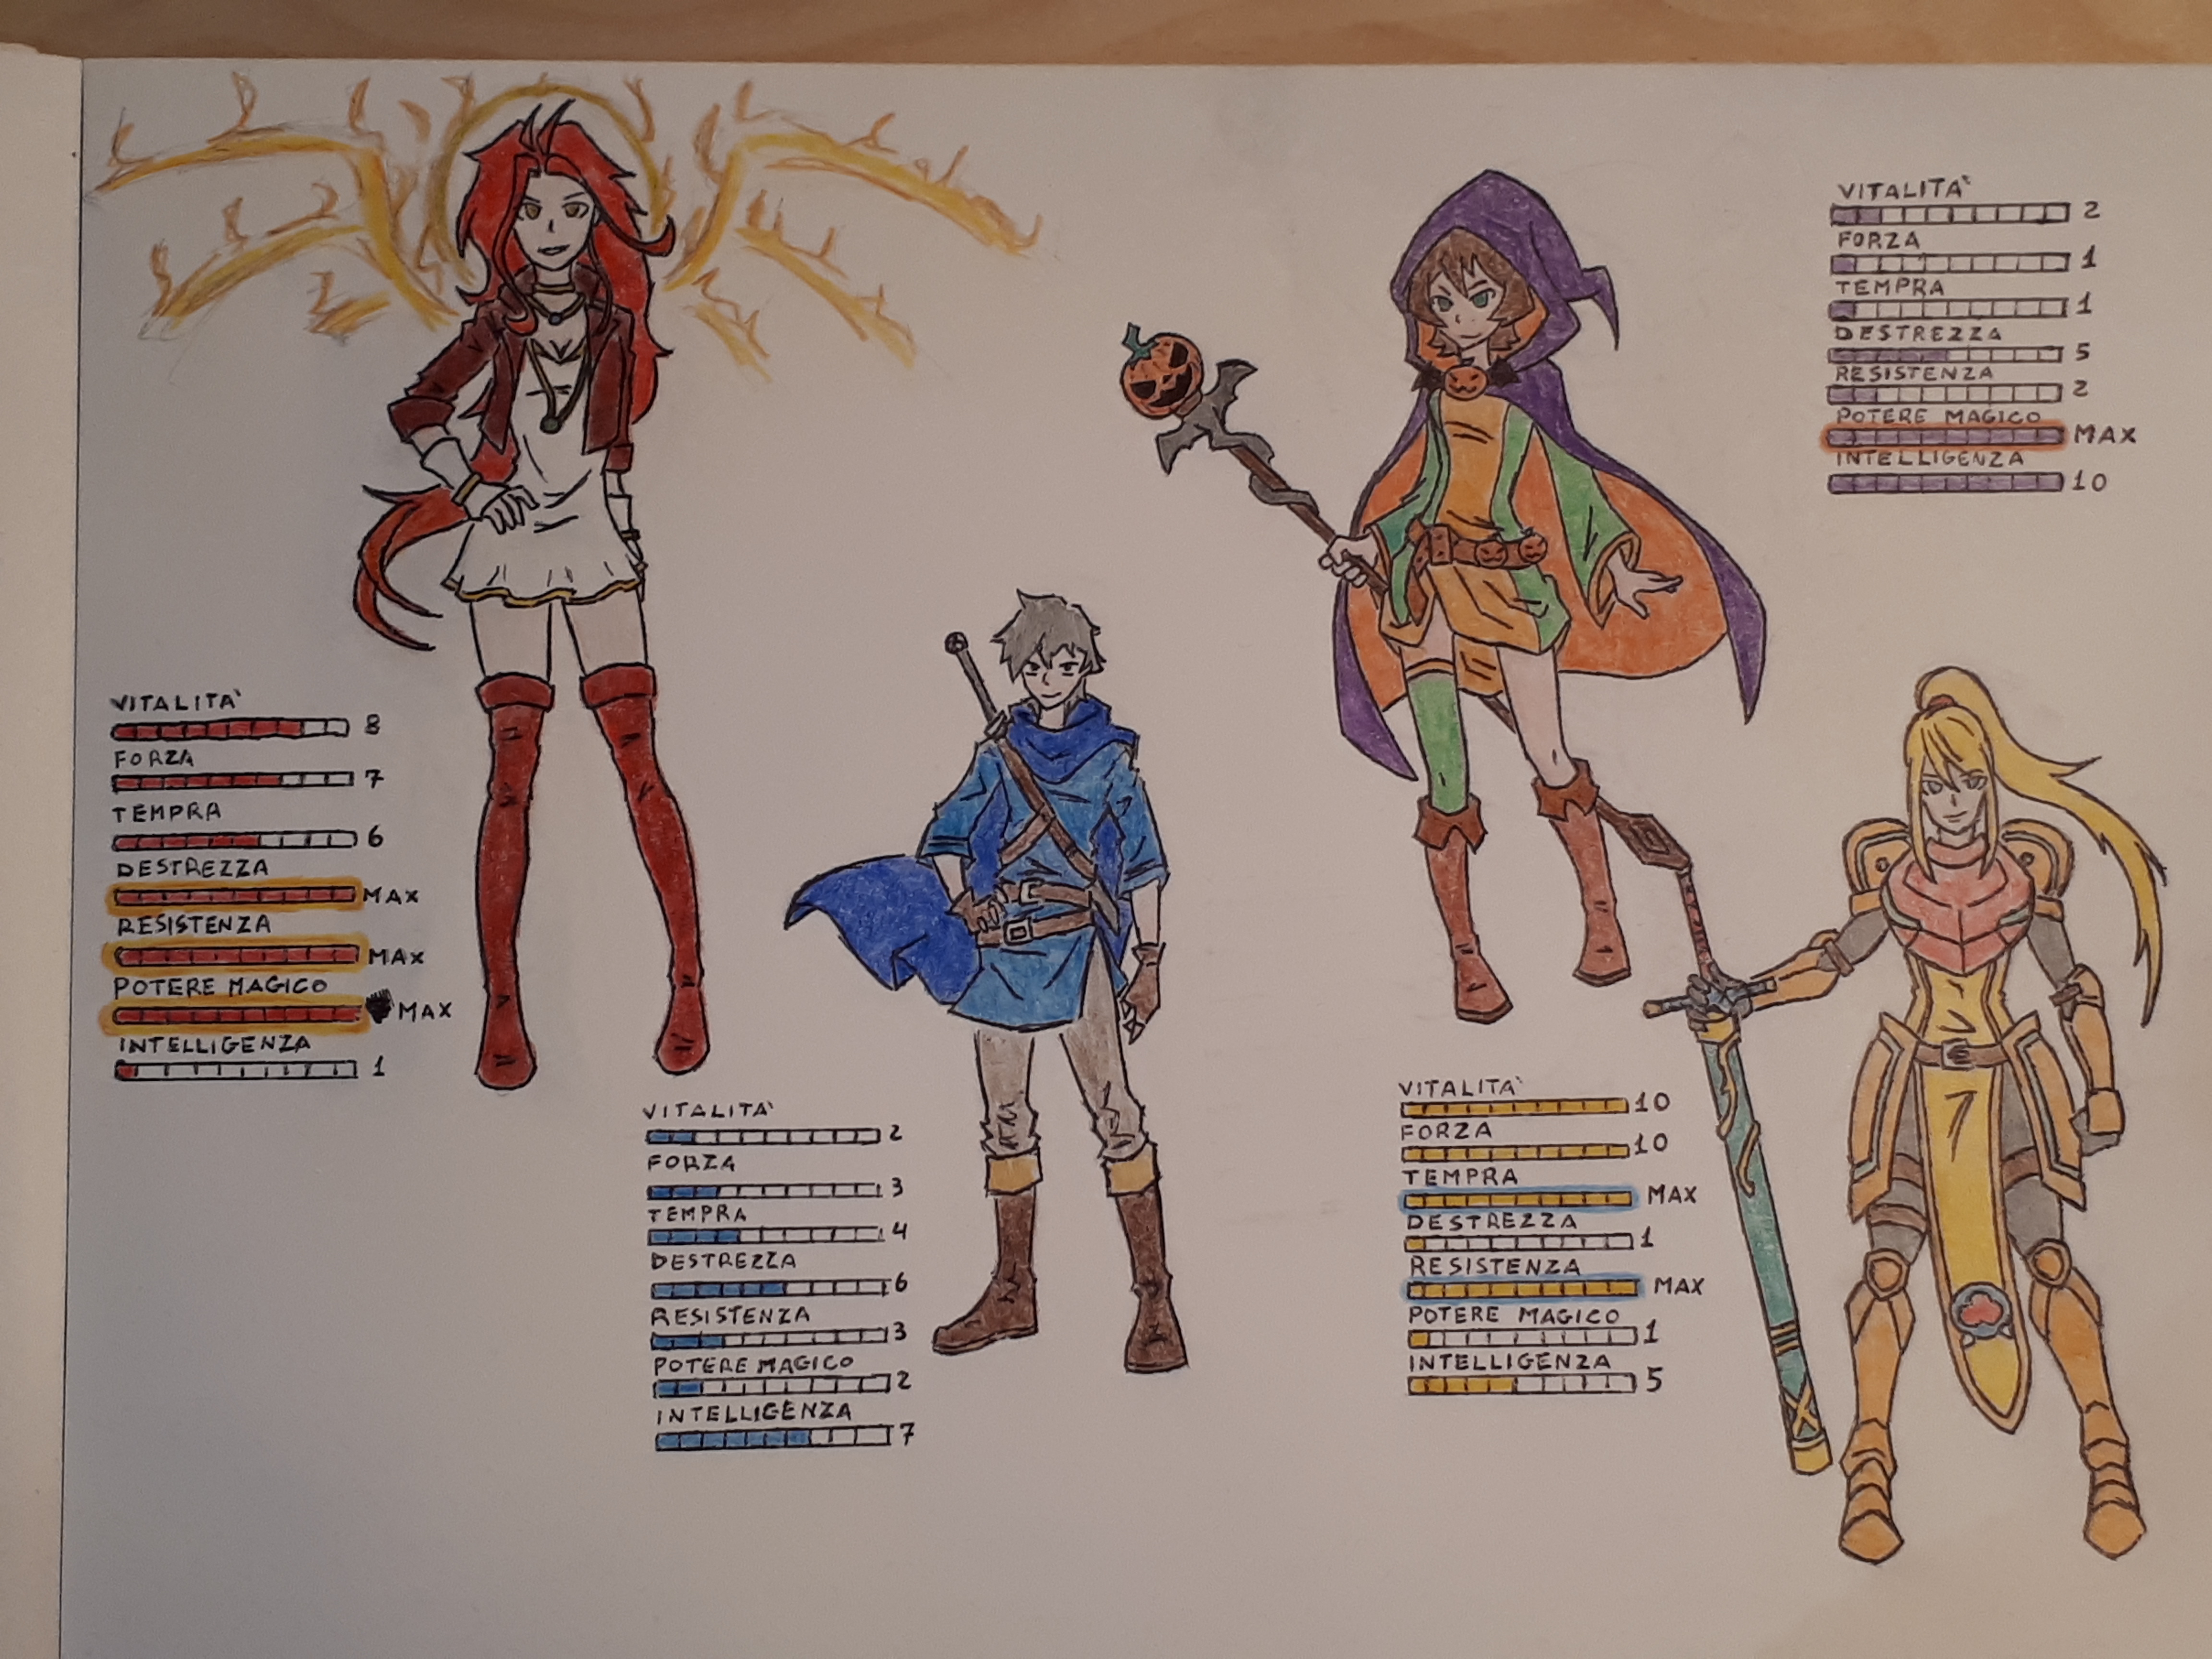 VITALITA'
8
FORZA
7
TEMPRA
6
DESTREZZA
MAX
RESISTENZA
MAX
POTERE MAGICO
MAX
INTELLIGENZA
1
VITALITA'
2
FORZA
3
TEMPRA
4
DESTREZZA
6
RESISTENZA
3
POTERE MAGICO
2
INTELLIGENZA
7
VITALITA'
2
FORZA
1
TEMPRA
1
DESTREZZA
5
RESISTENZA
2
POTERE MAGICO
MAX
INTELLIGENZA
10
VITALITA'
10
FORZA
10
TEMPRA
MAX
DESTREZZA
1
RESISTENZA
MAX
POTERE MAGICO
1
INTELLIGENZA
5